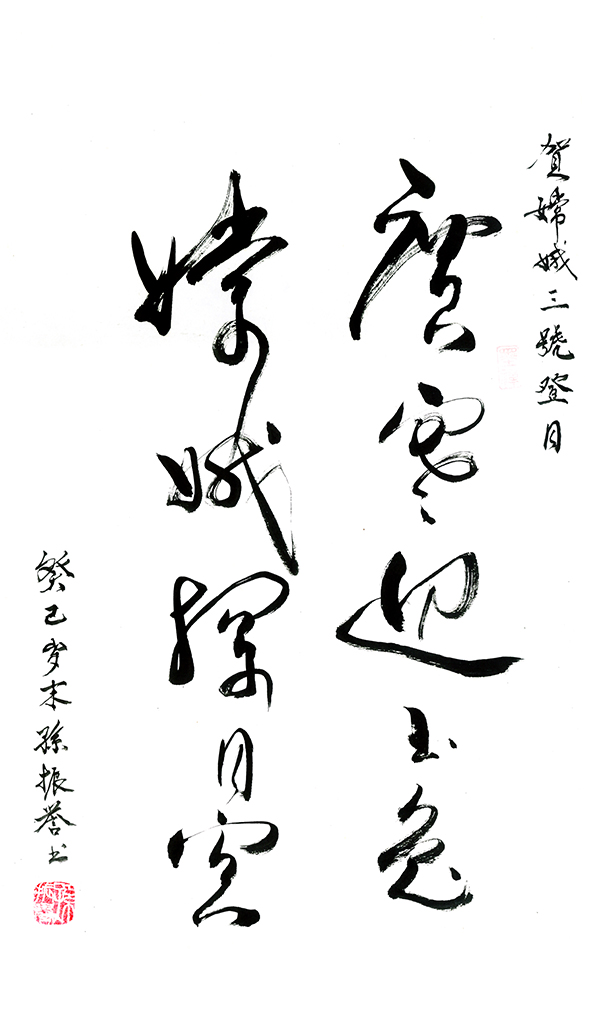 賀嫦娥三號登月
廣寒迎玉兔
嫦娥探月宮
癸巳岁末孫振誉书